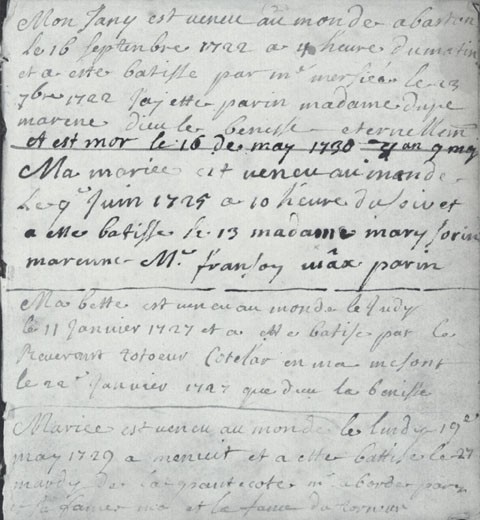 Mon Jany est veneu au monde a baston
le 16 Septenbre 1722 a 4 heure du matin
et a ette batisse par mr mersiée le 23
7bre 1722 J'aj ette parin madame dupe
marene dieu le benesse eternellem
et est mor le 16 de may 1730 7 an 9 moj
Ma mariée est veneu au monde
le 9e Juin 1725 a 10 heure du soir et
a ette batisse le 13 madame mary Sorin
marenne Mr fransoy parin
Ma bette est veneu au monde le Judy
le 11 Janvier 1727 et a ette batise par le
Reverant en ma mesont
le 22e Janvier 1727 que dieu la benisse
Mariee est veneu au monde le lundy 19e
may 1729 a menuit et a ette battise le 27
mardy de la mr
et sa famee et la fame du